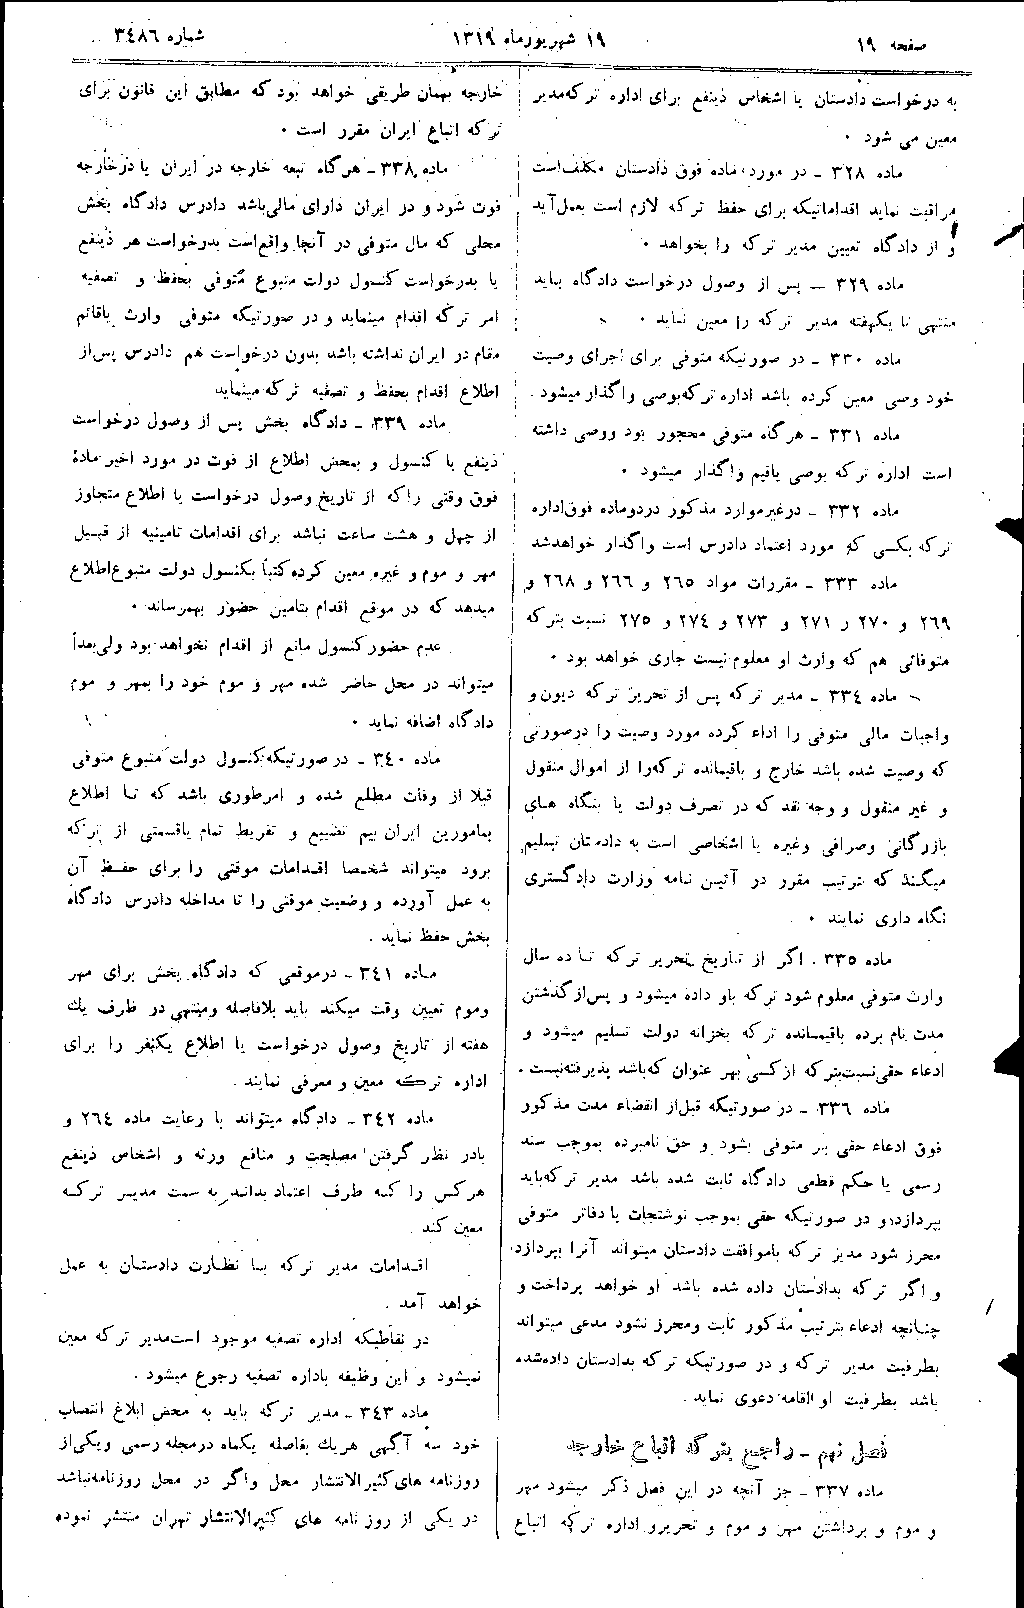 صفحه ۱۹
۱۹ شهریورماه ۱۳۱۹
شماره ۳٤۸٦
به درخواست دادستان یا اشخاص ذینفع برای اداره ترکه‌مدیر
معین می شود ۰
ماده ۳۲۸ ـ در مورد ماده فوق دادستان مکلف‌است
مراقبت نماید اقداماتیکه برای حفظ ترکه لازم است بعمل‌آید
و از دادگاه تعیین مدیر ترکه را بخواهد ۰
ماده ۳۲۹ ـ پس از وصول درخواست دادگاه باید
منتهی تا یکهفته مدیر ترکه را معین نماید ۰
ماده ۳۳۰ ـ در صورتیکه متوفی برای اجرای وصیت
خود وصی معین کرده باشد اداره ترکه‌بوصی واگذار میشود .
ماده ۳۳۱ ـ هرگاه متوفی محجور بود ووصی داشته
است اداره ترکه بوصی یاقیم واگذار میشود ۰
ماده ۳۳۲ ـ درغیرموارد مذکور دردوماده فوق‌اداره
ترکه بکسی که مورد اعتماد دادرس است واگذار خواهدشد
ماده ۳۳۳ ـ مقررات مواد ۲٦٥ و ۲٦٦ و ۲٦۸ و
۲٦۹ و ۲۷۰ ر ۲۷۱ و ۲۷۳ و ۲۷٤ و ۲۷٥ نسبت بترکه
متوفائی هم که وارث او معلوم نیست جاری خواهد بود ۰
ماده ۳۳٤ ـ مدیر ترکه پس از تحریر ترکه دیون‌و
واجبات مالی متوفی را اداء کرده مورد وصیت را درصورتی
که وصیت شده باشد خارج و باقیمانده ترکه‌را از اموال منقول
و غیر منقول و وجه نقد که در تصرف دولت یا بنگاه های
بازرگانی وصرافی وغیره یا اشخاصی است به دادستان تسلیم
میکند که ترتیب مقرر در آئین نامه وزارت دادگستری
نگاه داری نمایند ۰
ماده ۳۳٥ . اگر از تاریخ تحریر ترکه تا ده سال
وارث متوفی معلوم شود ترکه باو داده میشود و پس‌ازگذشتن
مدت نام برده باقیمانده ترکه بخزانه دولت تسلیم میشود و
ادعاء حقی‌نسبت‌بترکه ازکسی بهر عنوان که‌باشد پذیرفته‌نیست ۰
ماده ۳۳٦ ـ در صورتیکه قبل‌از انقضاء مدت مذکور
فوق ادعاء حقی بر متوفی بشود و حق نامبرده بموجب سند
رسمی یا حکم قطعی دادگاه ثابت شده باشد مدیر ترکه‌باید
بپردازدو در صورتیکه حقی بموجب نوشتجات یا دفاتر متوفی
محرز شود مدیر ترکه باموافقت دادستان میتواند آنرا بپردازد
و اگر ترکه بدادستان داده شده باشد او خواهد پرداخت و
چنانچه ادعاء بترتیب مذکور ثابت ومحرز نشود مدعی میتواند
بطرفیت مدیر ترکه و در صورتیکه ترکه بدادستان داده‌شده
باشد بطرفیت او اقامه دعوی نماید .
فصل نهم ـ راجع بترکه اتباع خارجه
ماده ۳۳۷ ـ جز آنچه در این فصل ذکر میشود مهر
و موم و برداشتن مهر و موم و تحریرو اداره ترکه اتباع
خارجه بهمان طریقی خواهد بود که مطابق این قانون برای
ترکه اتباع ایران مقرر است ۰
ماده ۳۳۸ ـ هرگاه تبعه خارجه در ایران یا درخارجه
فوت شود و در ایران دارای مالی‌باشد دادرس دادگاه بخش
محلی که مال متوفی در آنجا واقع‌است بدرخواست هر ذینفع
یا بدرخواست کنسول دولت متبوع متوفی بحفظ و تصفیه
امر ترکه اقدام مینماید و در صورتیکه متوفی وارث یاقائم
مقام در ایران نداشته باشد بدون درخواست هم دادرس پس‌از
اطلاع اقدام بحفظ و تصفیه ترکه مینماید
ماده ۳۳۹ ـ دادگاه بخش پس از وصول درخواست
ذینفع یا کنسول و بمحض اطلاع از فوت در مورد اخیر مادهٔ
فوق وقتی راکه از تاریخ وصول درخواست یا اطلاع متجاوز
از چهل و هشت ساعت نباشد برای اقدامات تامینیه از قبیل
مهر و موم و غیره معین کرده‌کتباً بکنسول دولت متبوع‌اطلاع
میدهد که در موقع اقدام بتامین حضور بهمرساند ۰
عدم حضورکنسول مانع از اقدام نخواهد بود ولی‌بعداً
میتواند در محل حاضر شده مهر و موم خود را بمهر و موم
دادگاه اضافه نماید ۰
ماده ۳٤۰ ـ در صورتیکه‌کنسول دولت متبوع متوفی
قبلا از وفات مطلع شده و امرطوری باشد که تا اطلاع
بمامورین ایران بیم تضییع و تفریط تمام یاقسمتی از ترکه
برود میتواند شخصا اقدامات موقتی را برای حفظ آن
به عمل آورده و وضعیت موقتی را تا مداخله دادرس دادگاه
بخش حفظ نماید .
ماده ۳٤۱ ـ درموقعی که دادگاه بخش برای مهر
وموم تعیین وقت میکند باید بلافاصله ومنتهی در ظرف یك
هفته از تاریخ وصول درخواست یا اطلاع یکنفر را برای
اداره ترکه معین و معرفی نمایند .
ماده ۳٤۲ ـ دادگاه میتواند با رعایت ماده ۲٦٤ و
بادر نظر گرفتن مصلحت و منافع ورثه و اشخاص ذینفع
هرکس را که طرف اعتماد بداند به سمت مدیر ترکه
معین کند .
اقدامات مدیر ترکه با نظارت دادستان به عمل
خواهد آمد .
در نقاطیکه اداره تصفیه موجود است‌مدیر ترکه معین
نمیشود و این وظیفه باداره تصفیه رجوع میشود .
ماده ۳٤۳ ـ مدیر ترکه باید به محض ابلاغ انتصاب
خود سه آگهی هریك بفاصله یکماه درمجله رسمی ویکی‌از
روزنامه های‌کثیرالانتشار محل واگر در محل روزنامه‌نباشد
در یکی از روزنامه های کثیرالانتشار تهران منتشر نموده